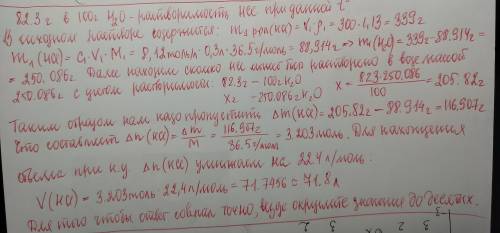 82.3 г в 100г H₂O - растворимость HCl при данной t°
В исходном растворе содержится: m₁ р-ра(HCl) = V₁·ρ₁ = 300·1,13 = 339г
m₁(HCl) = C₁·V₁·M₁ = 8,12моль/л·0,3л·36.5г/моль = 88,914г ⇒ m₁(H₂O) = 339г-88.914г =
= 250.086г. Далее находим сколько HCl может раствориться в воде массой
250.086г с учетом растворимости: 82.3г – 100г H₂O
x г – 250.086г H₂O x = 82.3·250,086 / 100 = 205.82г
Таким образом нам надо пропустить Δm(HCl) = 205,82г - 88.914г = 116,907г
Что составляет Δn(HCl) = Δm/M = 116,907г / 36.5г/моль = 3.203моль. Для нахождения
объема при н.у. Δn(HCl) умножаем на 22.4л/моль:
V(HCl) = 3.203моль·22,4л/моль = 71.7456 ≈ 71.8л
Для того чтобы ответ совпал точно, везде округлите значения до десятых.